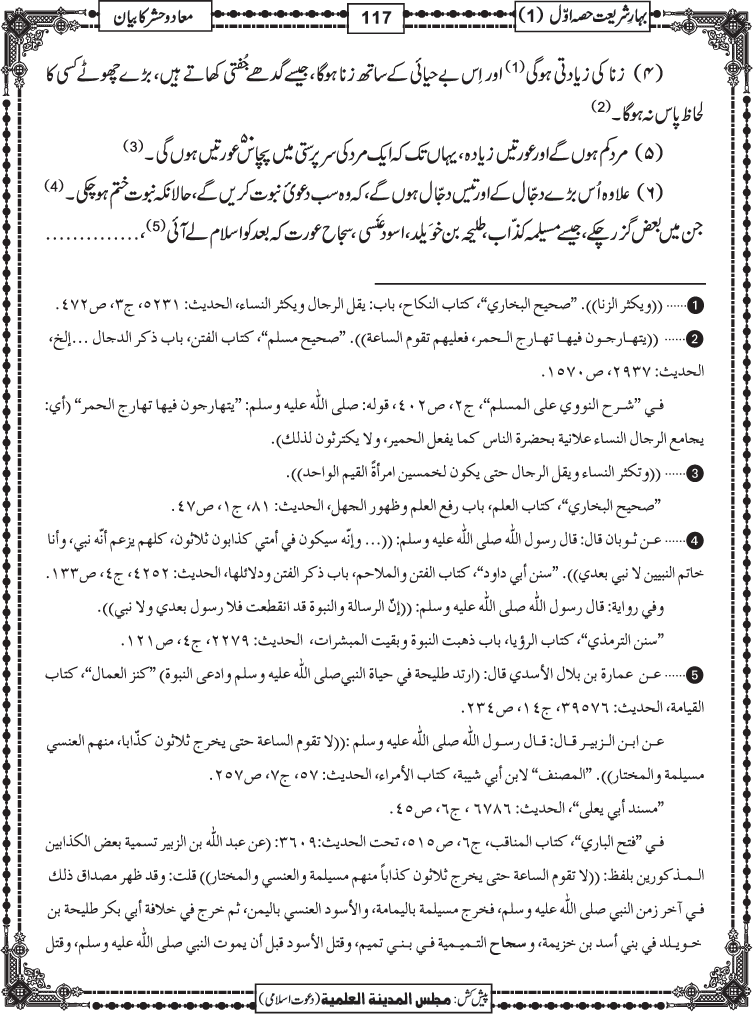 بہارِ شریعت حصہ اوّل (1)
117
معاد و حشر کا بیان
(۴) زنا کی زیادتی ہوگی(1) اور اِس بے حیائی کے ساتھ زنا ہوگا، جیسے گدھے جُفتی کھاتے ہیں، بڑے چھوٹے کسی کا
لحاظ پاس نہ ہوگا۔(2)
(۵) مرد کم ہوں گے اور عورتیں زیادہ، یہاں تک کہ ایک مرد کی سرپرستی میں پچاس ۵۰ عورتیں ہوں گی۔(3)
(۶) علاوہ اُس بڑے دجّال کے اور تیس دجّال ہوں گے، کہ وہ سب دعویٔ نبوت کریں گے، حالانکہ نبوت ختم ہو چکی۔(4)
جن میں بعض گزر چکے، جیسے مسیلمہ کذّاب، طلیحہ بن خوَیلد، اسود عَنَسی، سجاح عورت کہ بعد کو اسلام لے آئی(5)، ..............
1...... ((ويكثر الزنا)). ”صحيح البخاري“، كتاب النكاح، باب: يقل الرجال ويكثر النساء، الحديث: ٥٢٣١، ج٣، ص٤٧٢.
2...... ((يتهارجون فيها تهارج الحمر، فعليهم تقوم الساعة)). ”صحيح مسلم“، كتاب الفتن، باب ذكر الدجال ...إلخ،
الحديث: ٢٩٣٧، ص١٥٧٠.
في ”شرح النووي على المسلم“، ج٢، ص٤٠٢، قوله: صلى الله عليه وسلم: ”يتهارجون فيها تهارج الحمر“ (أي:
يجامع الرجال النساء علانية بحضرة الناس كما يفعل الحمير، ولا يكترثون لذلك).
3...... ((وتكثر النساء ويقل الرجال حتى يكون لخمسين امرأةً القيم الواحد)).
”صحيح البخاري“، كتاب العلم، باب رفع العلم وظهور الجهل، الحديث: ٨١، ج١، ص٤٧.
4...... عن ثوبان قال: قال رسول الله صلى الله عليه وسلم: ((... وإنّه سيكون في أمتي كذابون ثلاثون، كلهم يزعم أنّه نبي، وأنا
خاتم النبيين لا نبي بعدي)). ”سنن أبي داود“، كتاب الفتن والملاحم، باب ذكر الفتن ودلائلها، الحديث: ٤٢٥٢، ج٤، ص١٣٣.
وفي رواية: قال رسول الله صلى الله عليه وسلم: ((إنّ الرسالة والنبوة قد انقطعت فلا رسول بعدي ولا نبي)).
”سنن الترمذي“، كتاب الرؤيا، باب ذهبت النبوة وبقيت المبشرات، الحديث: ٢٢٧٩، ج٤، ص١٢١.
5...... عن عمارة بن بلال الأسدي قال: (ارتد طليحة في حياة النبي صلى الله عليه وسلم وادعى النبوة) ”كنز العمال“، كتاب
القيامة، الحديث: ٣٩٥٧٦، ج١٤، ص٢٣٤.
عن ابن الزبير قال: قال رسول الله صلى الله عليه وسلم :((لا تقوم الساعة حتى يخرج ثلاثون كذّابا، منهم العنسي
مسيلمة والمختار)). ”المصنف“ لابن أبي شيبة، كتاب الأمراء، الحديث: ٥٧، ج٧، ص٢٥٧.
”مسند أبي يعلى“، الحديث: ٦٧٨٦ ، ج٦، ص٤٥.
في ”فتح الباري“، كتاب المناقب، ج٦، ص٥١٥، تحت الحديث:٣٦٠٩: (عن عبد الله بن الزبير تسمية بعض الكذابين
المذكورين بلفظ: ((لا تقوم الساعة حتى يخرج ثلاثون كذاباً منهم مسيلمة والعنسي والمختار)) قلت: وقد ظهر مصداق ذلك
في آخر زمن النبي صلى الله عليه وسلم، فخرج مسيلمة باليمامة، والأسود العنسي باليمن، ثم خرج في خلافة أبي بكر طليحة بن
خويلد في بني أسد بن خزيمة، وسجاح التميمية في بني تميم، وقتل الأسود قبل أن يموت النبي صلى الله عليه وسلم، وقتل
پیش کش: مجلس المدينة العلمية (دعوت اسلامی)